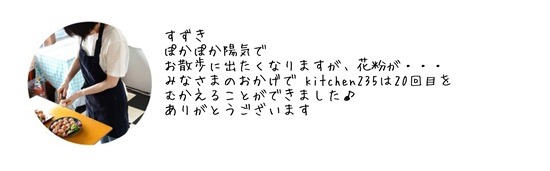 すずき
ぽかぽか陽気で
お散歩に出たくなりますが、花粉が・・・
みなさまのおかげで kitchen235は20回目を
むかえることができました♪
ありがとうございます